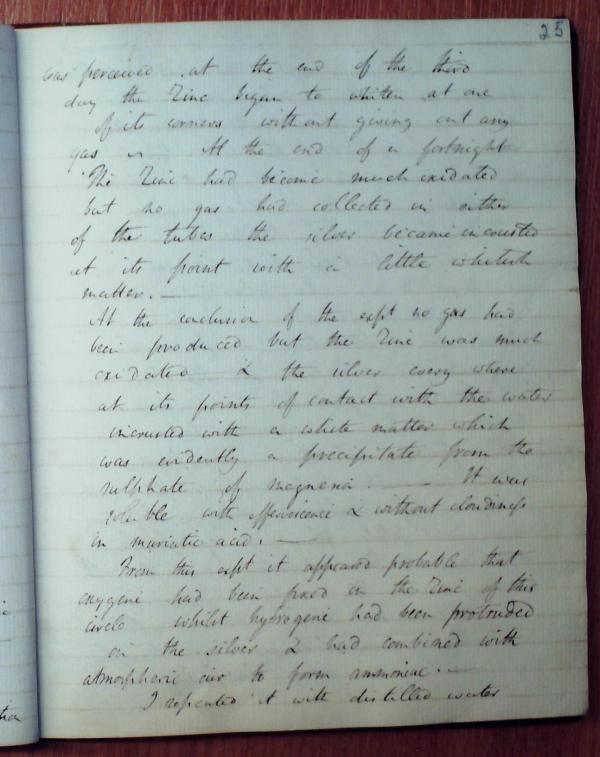 25
was perceived at the end of the third
day the Zinc began to whiten at one
of its corners without giving out any
gas At the end of a fortnight
The Zinc had become much oxidated
but no gas had collected in either
of the tubes the silver became incrusted
at its point with a little whitish
matter. —
At the conclusion of the expt no gas had
been produced but the Zinc was much
oxidated & the silver every where
at its points of contact with the water
incrusted with a white matter which
was evidently a precipitate from the
sulphate of magnesia. — It was
soluble with effervescence & without cloudiness
in muriatic acid. —
From this expt it appeared probable that
oxygene had been fixed on the Zinc of this
circle whilst hydrogene had been protruded
on the silver & had combined with
atmospheric air to form ammoniac. —
I repeated it with distilled water